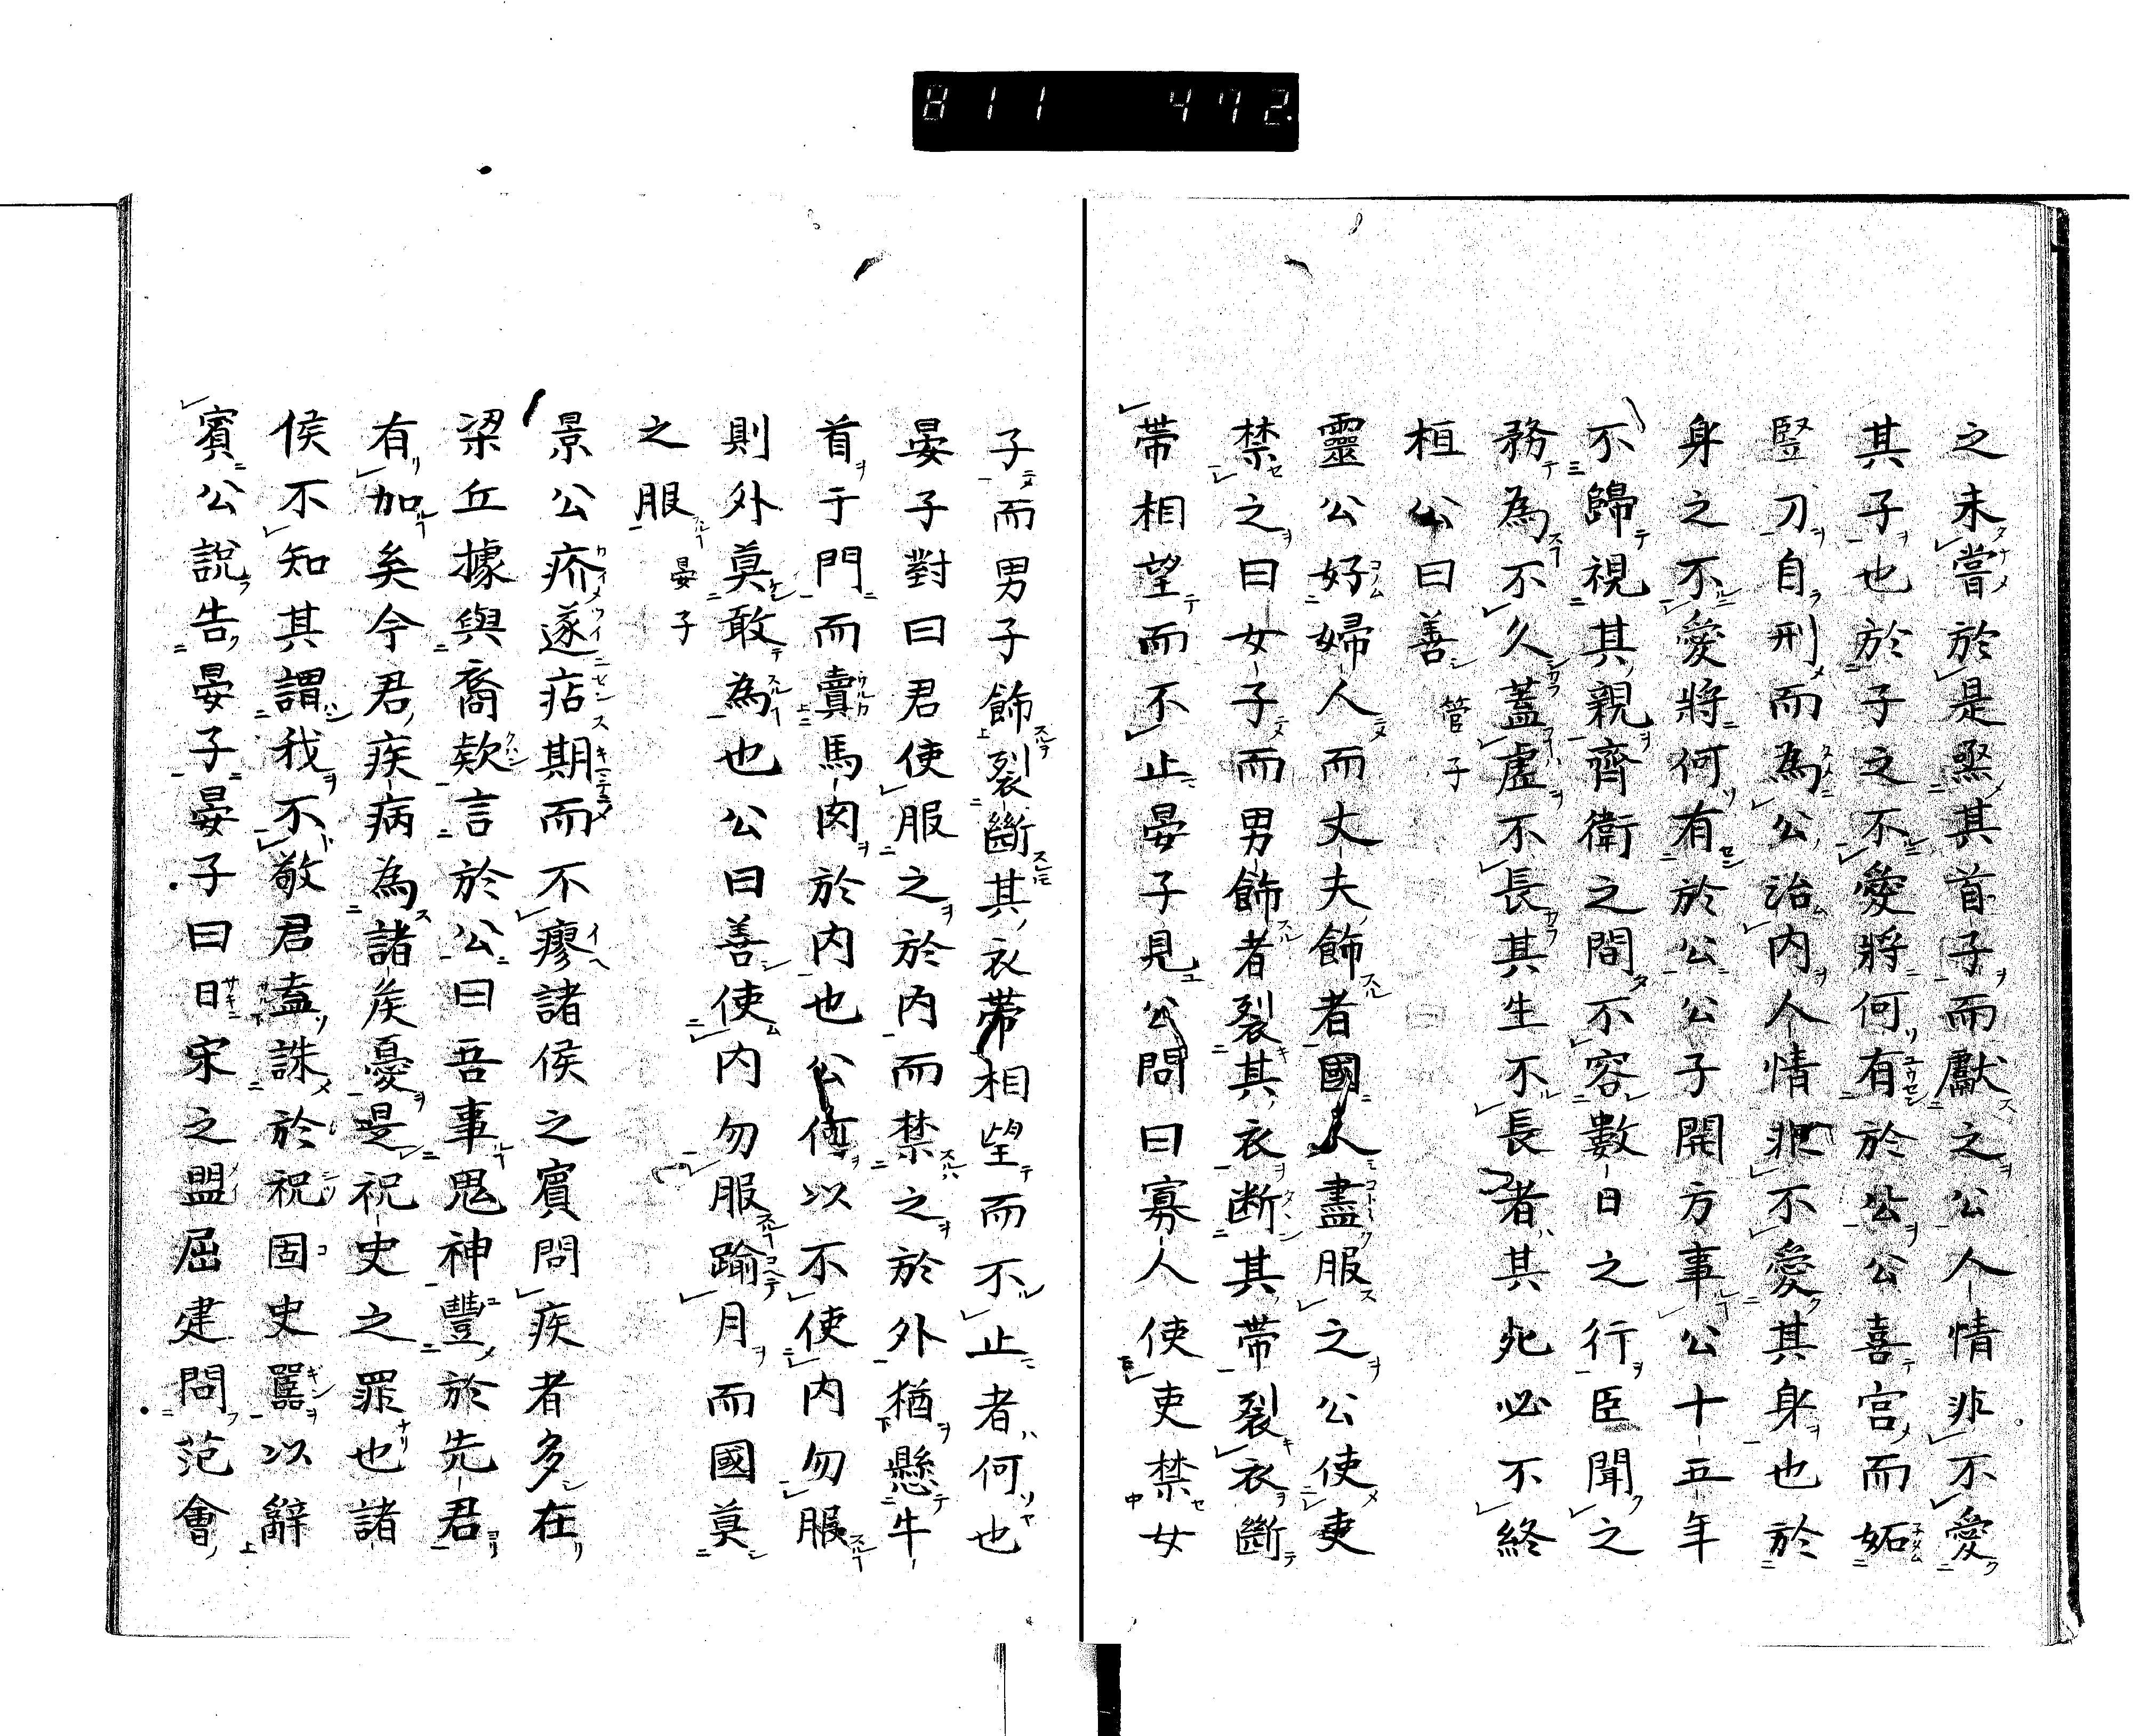 811 472.
之未嘗於是烝其首子而獻之公人情非不愛
其子也於子之不愛將何有於公公喜宮而妬
豎刀自刑而為公治内人情非不愛其身也於
身之不愛將何有於公公子開方事公十五年
不歸視其親齊衛之間不容數日之行臣聞之
務為不久蓋虛不長其生不長者其死必不終
桓公曰善 管子
靈公好婦人而丈夫飾者國人盡服之公使吏
禁之曰女子而男飾者裂其衣断其帶裂衣斷
帶相望而不止晏子見公問曰寡人使吏禁女
子而男子飾裂斷其衣帶相望而不止者何也
晏子對曰君使服之於内而禁之於外猶懸牛
首于門而賣馬肉於内也公何以不使内勿服
則外莫敢為也公曰善使内勿服踰月而國莫
之服 晏子
景公疥遂痁期而不瘳諸侯之賓問疾者多在
梁丘據與裔欵言於公曰吾事鬼神豐於先君
有加矣今君疾病為諸侯憂是祝史之罪也諸
侯不知其謂我不敬君盍誅於祝固史嚚以辭
賓公說告晏子晏子曰日宋之盟屈建問范會